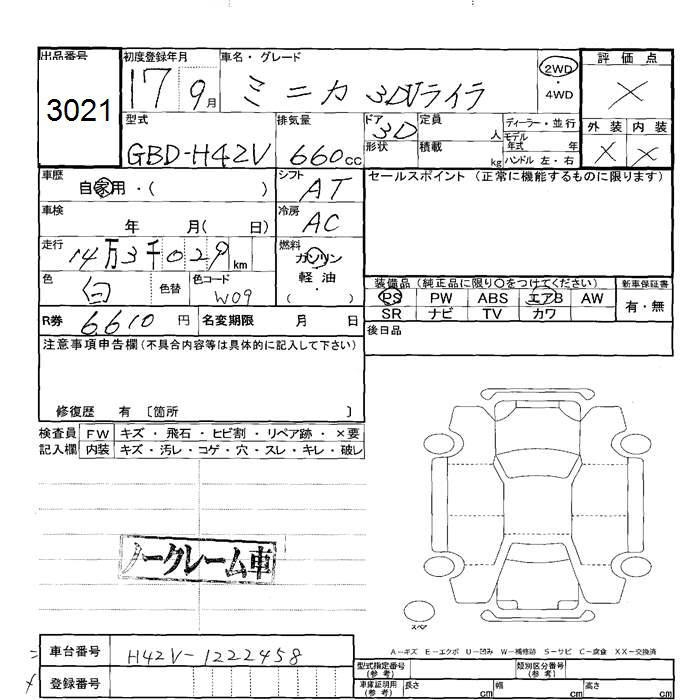 出品番号
3021
初度登録年月
17 9月
車名・グレード
ミニカ 3Dバンライラ
2WD
・4WD
評価点
×
外装 内装
× ×
型式
GBD-H42V
排気量
660cc
ドア
3D
形状
定員
人
積載
kg
ディーラー・並行
モデル年式 年
ハンドル 左・右
車歴
自家用・( )
シフト
AT
セールスポイント (正常に機能するものに限ります)
車検
年 月( 日)
冷房
AC
走行
14万3千029km
燃料
ガソリン
軽・油
( )
色
白
色替
色コード
W09
装備品 (純正品に限り○をつけてください)
新車保証書
PS PW ABS エアB AW
SR ナビ TV カワ
有・無
R券 6,610 円
名変期限 月 日
後日品
注意事項申告欄(不具合内容等は具体的に記入して下さい)
修復歴 有 〔箇所 〕
検査員 記入欄
FW キズ・飛石・ヒビ割・リペア跡・×要
内装 キズ・汚レ・コゲ・穴・スレ・キレ・破レ
ノークレーム車
スペア
A-キズ E-エクボ U-凹み W-補修跡 S-サビ C-腐食 XX-交換済
車台番号
H42V-1222458
登録番号
型式指定番号
(参考)
類別区分番号
(参考)
車庫証明用
(参考)
長さ cm
幅 cm
高さ cm